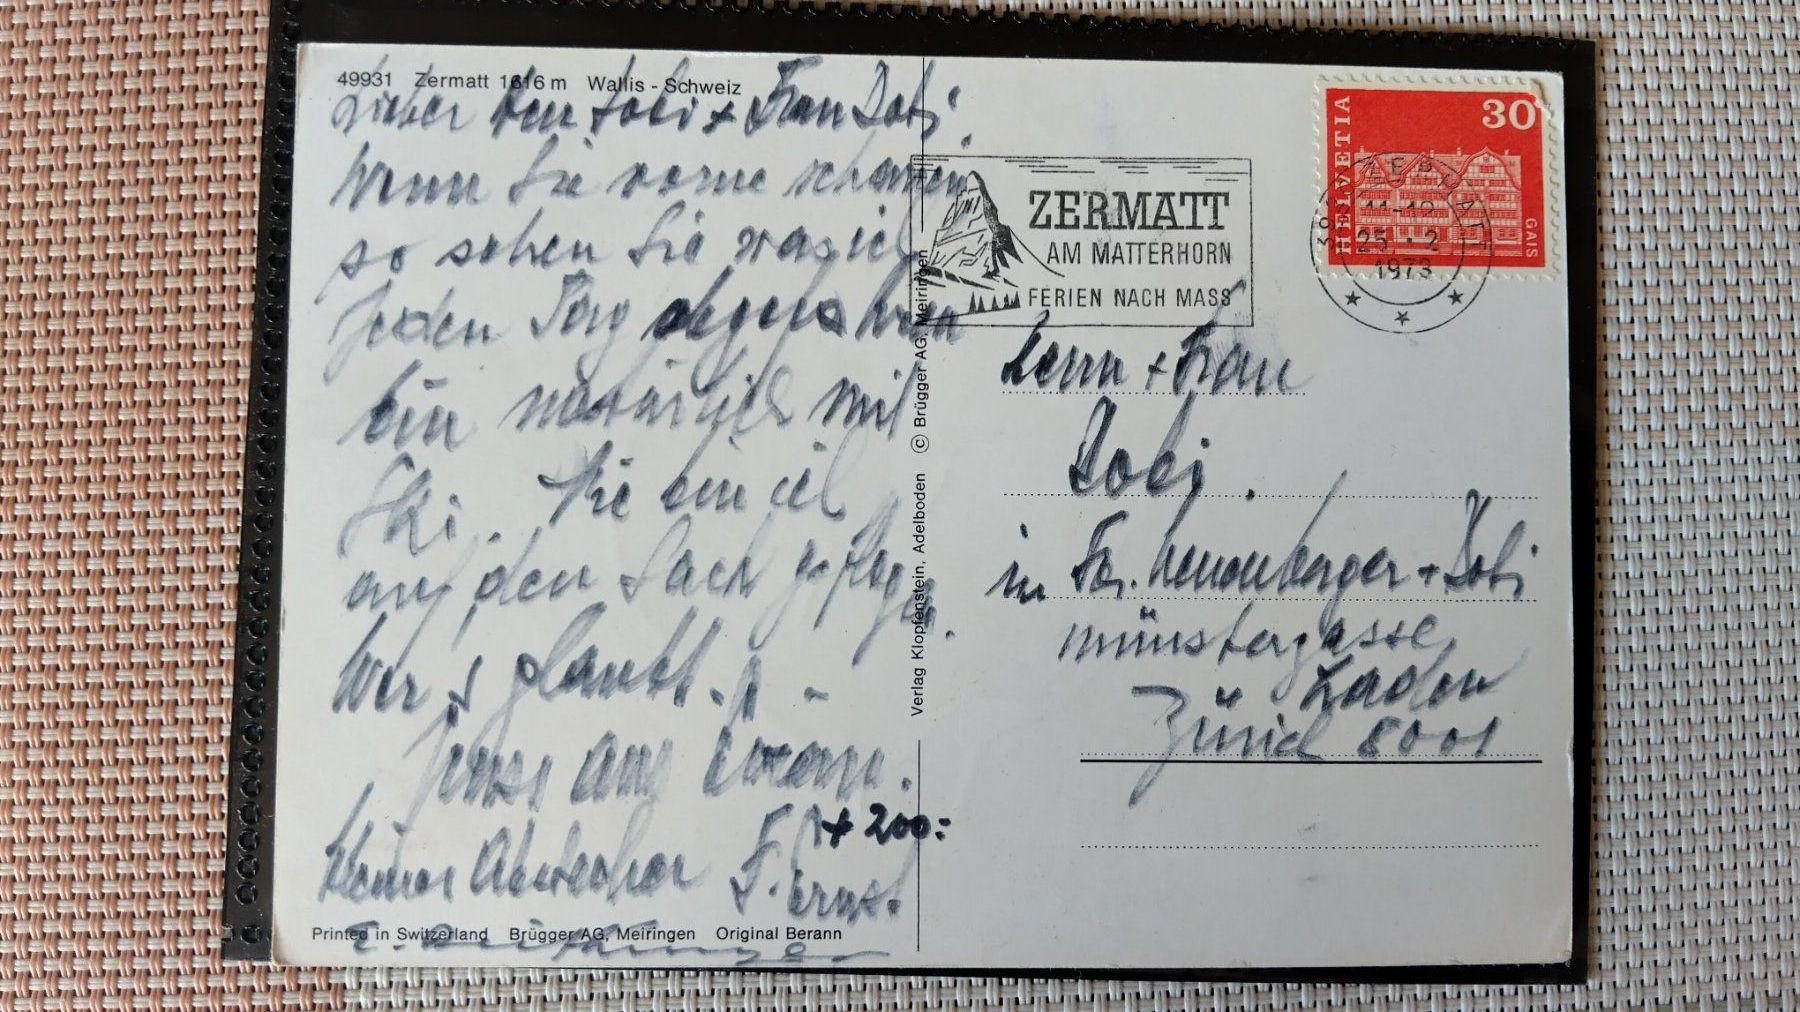 49931 Zermatt 1616 m Wallis - Schweiz
Lieber Herr Dobi + Frau Dobi.
Wenn Sie vorne schauen
so sehen Sie was ich
jeden Tag
bin natürlich mit
Ski. Nie bin ich
auf den Sack geflogen.
Wer's glaubt.
Gruss aus
Kleiner Abstecher F. Ernst
+ 200:-
Printed in Switzerland Brügger AG, Meiringen Original Berann
Verlag Klopfenstein, Adelboden © Brügger AG, Meiringen
ZERMATT
AM MATTERHORN
FERIEN NACH MASS
HELVETIA
30
GAIS
3920 ZERMATT
25.-2
1973
Herrn + Frau
Dobi.
in Fa. + Dobi
Münstergasse
Laden
Zürich 8001